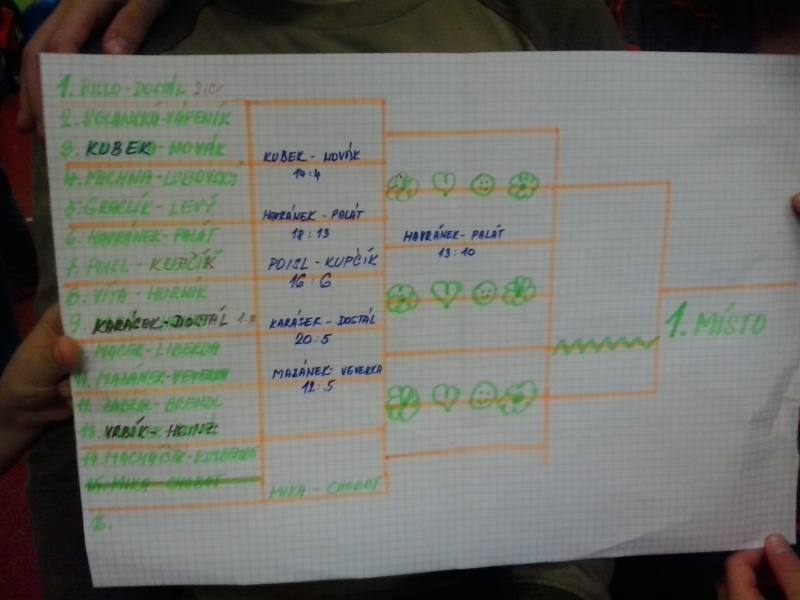 1. BILLO - DOSTÁL 2.C
2. SOLANSKÁ - VÁPENÍK
3. KUBEK - NOVÁK
4. MICHNA - LUBOVSKÝ
5. GRACLÍK - LEVÝ
6. HAVRÁNEK - PALÁT
7. POISL - KUPČÍK
8. VÍTA - HURNÍK
9. KARÁSEK - DOSTÁL 1.A
MACEK - LIBERDA
11. MAZÁNEK - VEVERKA
12. - BRENDL
13. VRBÍK - HEINZ
14. MACHÁČEK -
15. MIKA - CHOBOT
16.
KUBEK - NOVÁK
14:4
HAVRÁNEK - PALÁT
18:13
POISL - KUPČÍK
16:6
KARÁSEK - DOSTÁL
20:5
MAZÁNEK - VEVERKA
12:5
MIKA - CHOBOT
HAVRÁNEK - PALÁT
13:10
1. MÍSTO